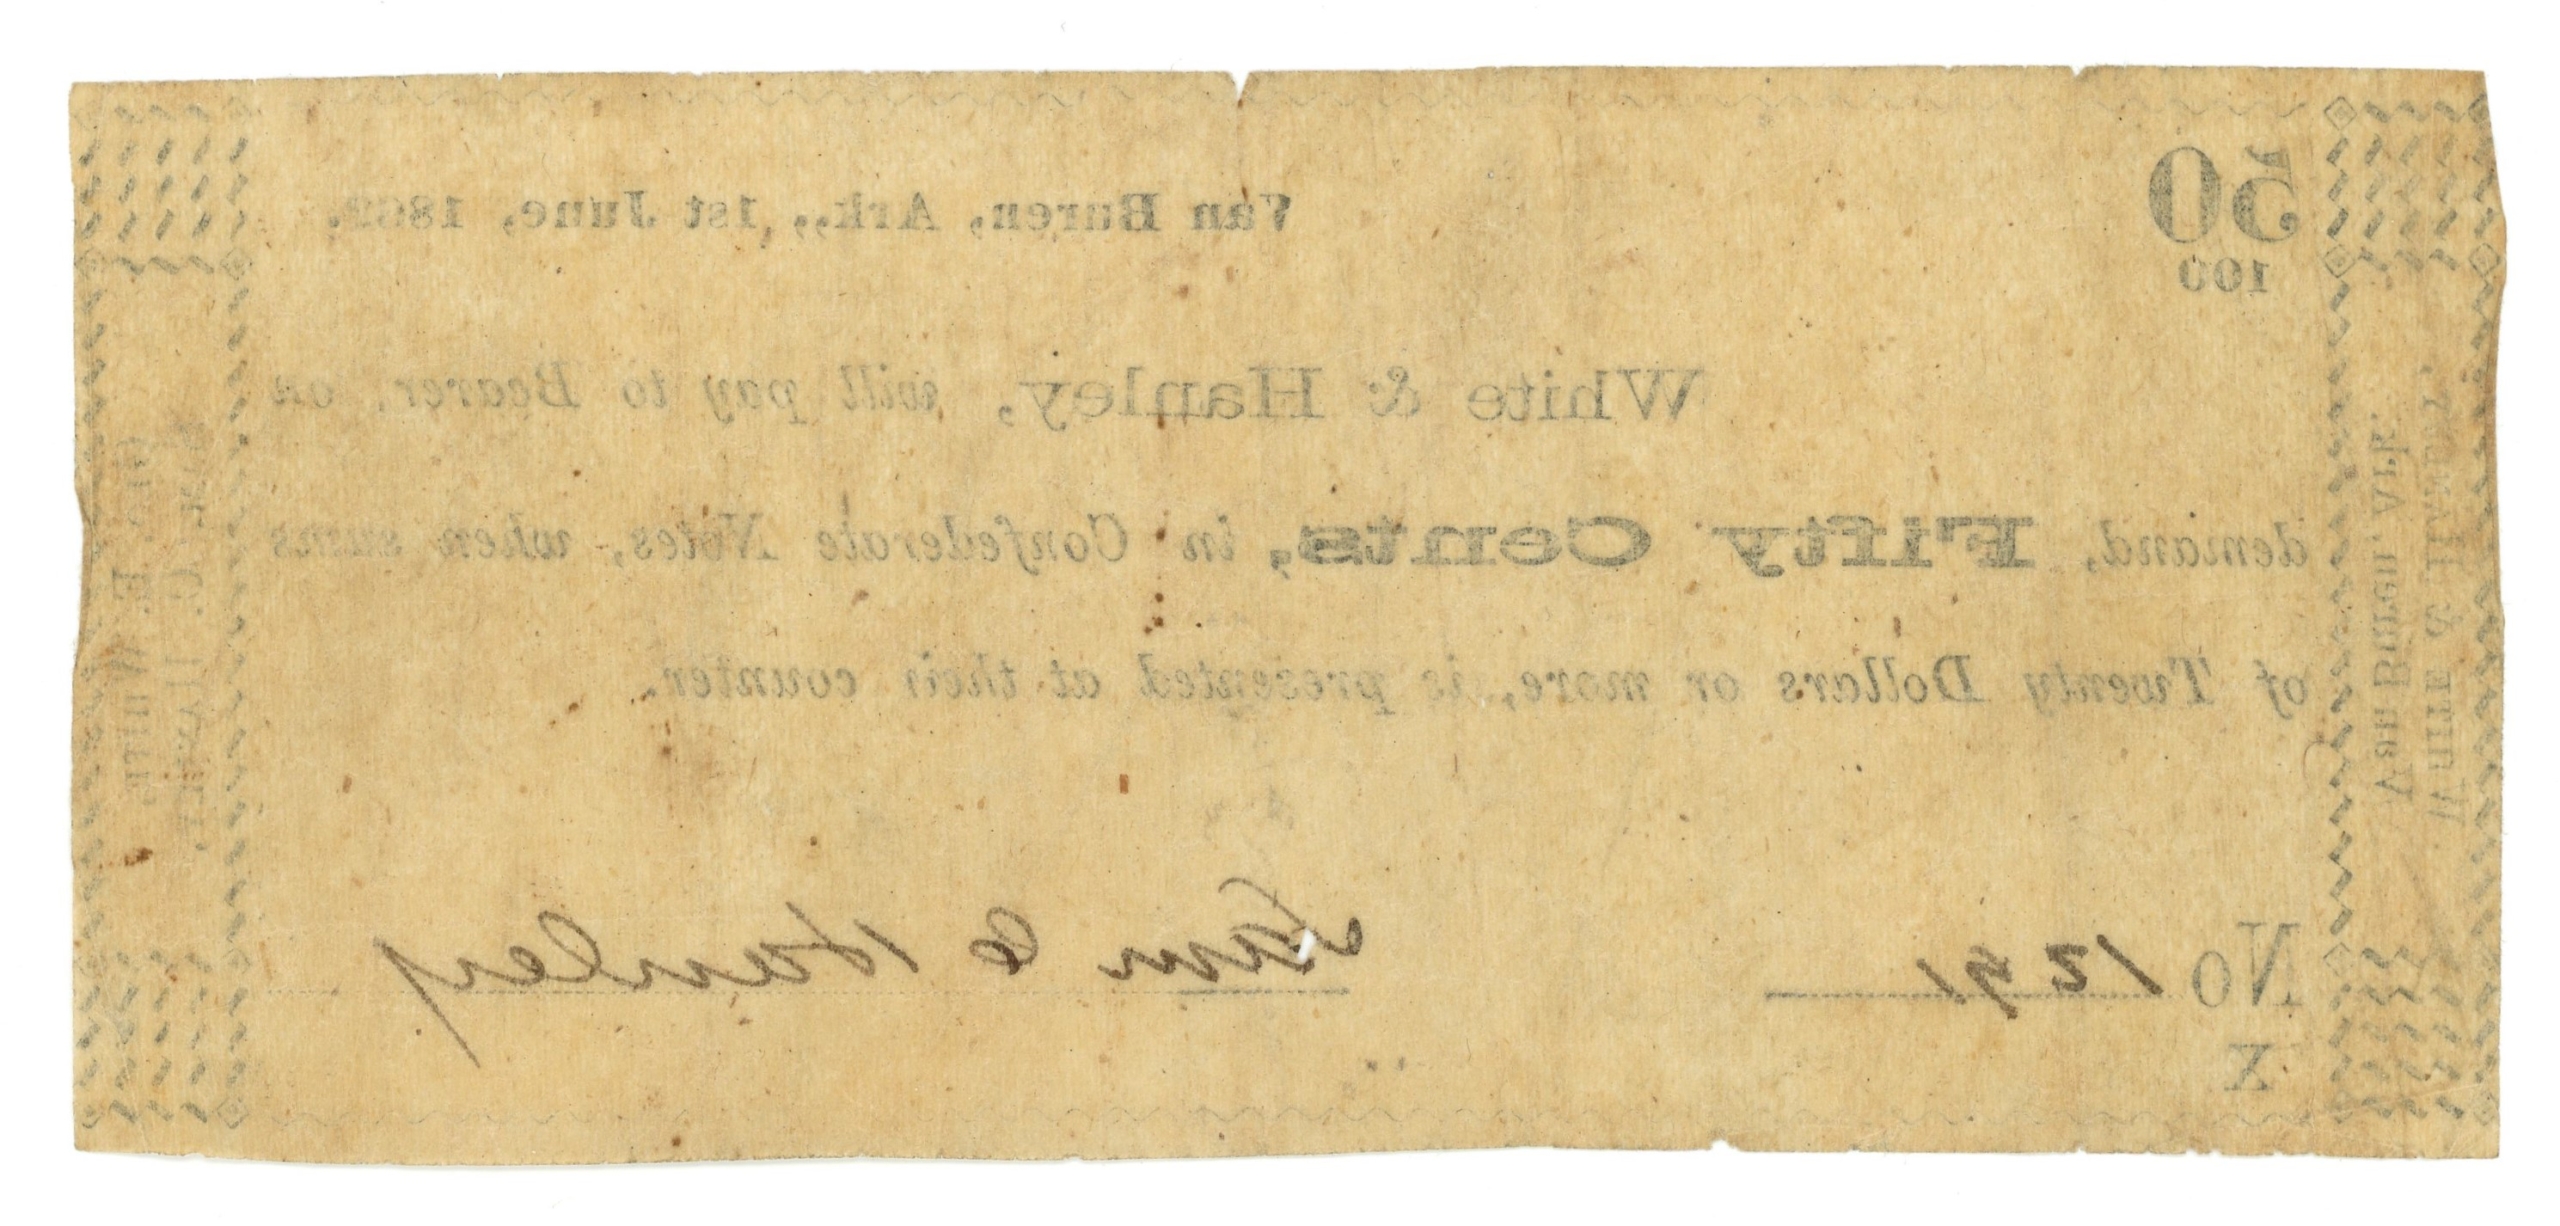 50
100
Van Buren, Ark., 1st June, 1862.
White & Hanley, will pay to Bearer, on
demand, Fifty Cents, in Confederate Notes, when sums
of Twenty Dollars or more, is presented at their counter.
No 1291
Sam C Hanley
X
White & Hanley,
Van Buren, Ark.
W. F. White,
C. Hanley.